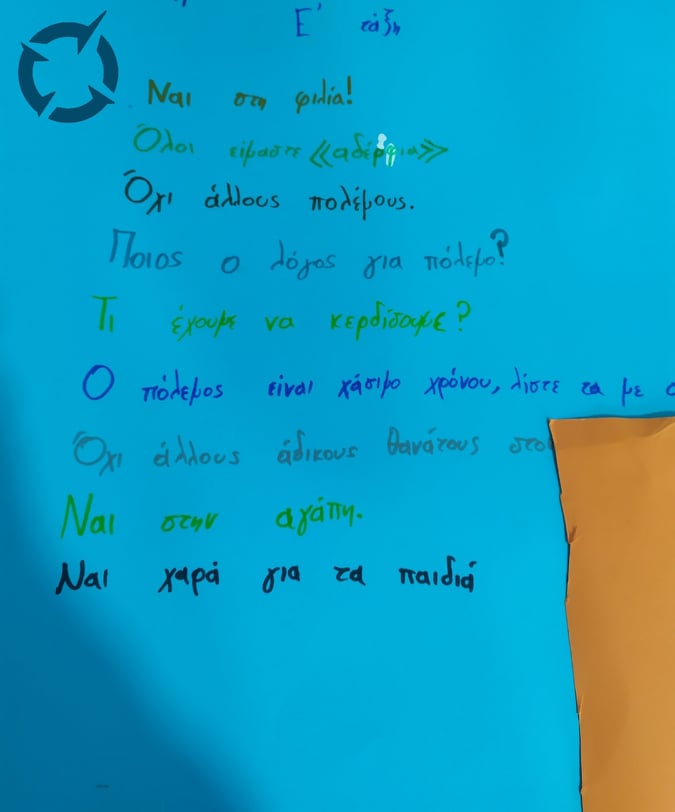 Ε' τάξη
Ναι στη φιλία!
Όλοι είμαστε «αδέρφια»
Όχι άλλους πολέμους.
Ποιος ο λόγος για πόλεμο?
Τι έχουμε να κερδίσουμε?
Ο πόλεμος είναι χάσιμο χρόνου, λίστε τα με
Όχι άλλους άδικους θανάτους
Ναι στην αγάπη.
Ναι χαρά για τα παιδιά